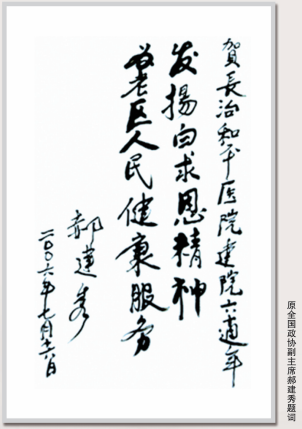 賀長治和平医院建院六週年
发揚白求恩精神
为老区人民健康服务
郝建秀
二〇〇六年七月十六日
原全国政协副主席郝建秀题词